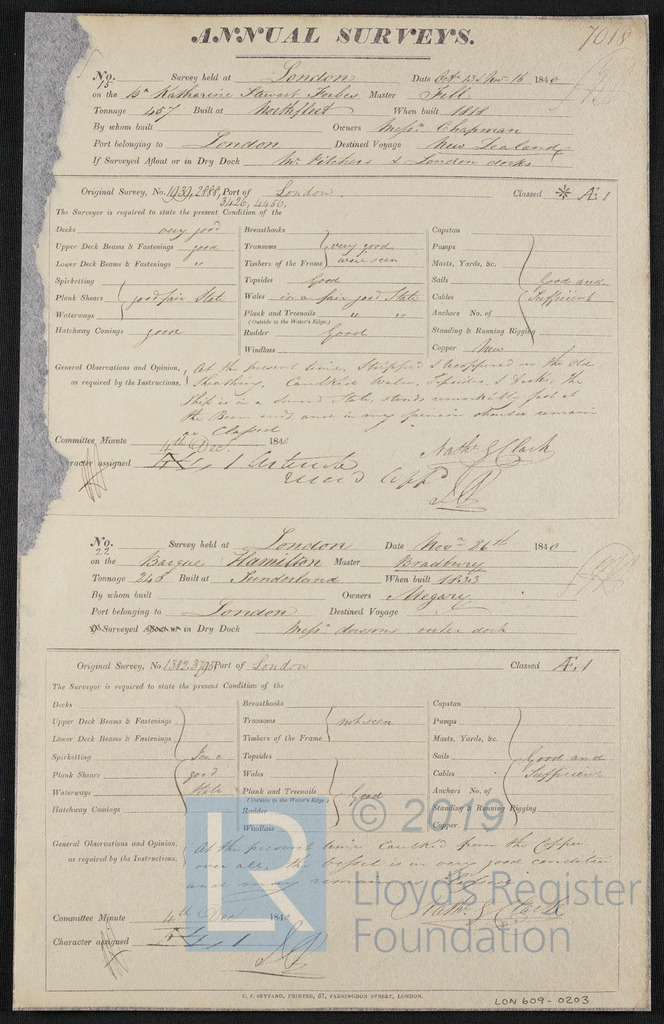 ANNUAL SURVEYS.
7018
No. 15 Survey held at London Date Oct 13 & Nov 16 1840
on the Bk Katharine Stewart Forbes Master Fell
Tonnage 457 Built at Northfleet When built 1818
By whom built Owners Messrs Chapman
Port belonging to London Destined Voyage New Zealand
If Surveyed Afloat or in Dry Dock Mr Pitchers & London docks
Original Survey, No. 1939, 2888, 3426, 4450, Port of London Classed ※ Æ 1
The Surveyor is required to state the present Condition of the
Decks very good
Upper Deck Beams & Fastenings good
Lower Deck Beams & Fastenings "
Spirketting
Plank Shears good fair State
Waterways
Hatchway Comings good
Breasthooks
Transoms very good
Timbers of the Frame were seen
Topsides Good
Wales in a fair good State
Plank and Treenails " "
(Outside to the Water's Edge.)
Rudder Good
Windlass
Capstan
Pumps
Masts, Yards, &c.
Sails Good and
Cables Sufficient
Anchors No. of
Standing & Running Rigging
Copper New
General Observations and Opinion, At the present time, Stripped & recoppered on the old
as required by the Instructions, Sheathing. Caulked Wales, Topsides & Decks, the
Ship is in a Sound State, stands remarkably fast at
the Beam ends and in my opinion should remain
as Classed
Committee Minute 4th Dec. 1840
Character assigned Æ 1
Nathl G Clark
No. 22 Survey held at London Date Novr 26th 1840
on the Barque Hamilton Master Bradbury
Tonnage 245 Built at Sunderland When built 1833
By whom built Owners Megary
Port belonging to London Destined Voyage
If Surveyed Afloat or in Dry Dock Messrs dowsons outer dock
Original Survey, No. 1382, 3795 Port of London Classed Æ. 1
The Surveyor is required to state the present Condition of the
Decks
Upper Deck Beams & Fastenings
Lower Deck Beams & Fastenings
Spirketting In a
Plank Shears good
Waterways State
Hatchway Comings
Breasthooks
Transoms not seen
Timbers of the Frame
Topsides
Wales
Plank and Treenails Good
(Outside to the Water's Edge.)
Rudder
Windlass
Capstan
Pumps
Masts, Yards, &c.
Sails Good and
Cables Sufficient
Anchors No. of
Standing & Running Rigging
Copper
General Observations and Opinion, At the present time Caulked from the Copper
as required by the Instructions, over all, the vessel is in very good condition
and may remain as Classed
Committee Minute 4th Dec 1840
Nathl G Clark
Character assigned Æ 1
C. F. SEYFANG, PRINTER, 57, FARRINGDON STREET, LONDON.
LON 609-0203
LR © 2019
Lloyd's Register
Foundation